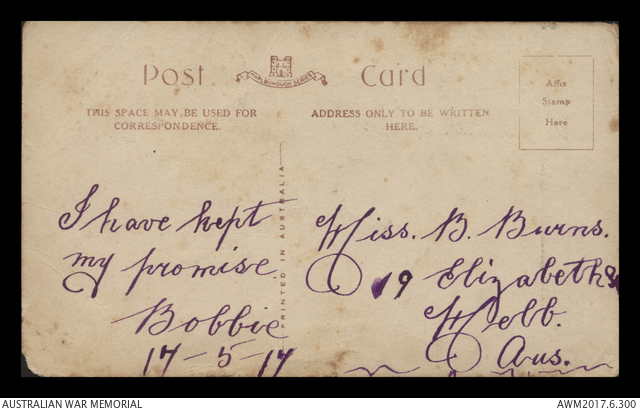 Post Card
MARLBOROUGH SERIES
THIS SPACE MAY BE USED FOR
CORRESPONDENCE.
ADDRESS ONLY TO BE WRITTEN
HERE.
Affix
Stamp
Here
PRINTED IN AUSTRALIA
I have kept
my promise
Bobbie
17-5-17
Miss. B. Burns.
19 Elizabeth S
Melb.
Aus.
AUSTRALIAN WAR MEMORIAL
AWM2017.6.300